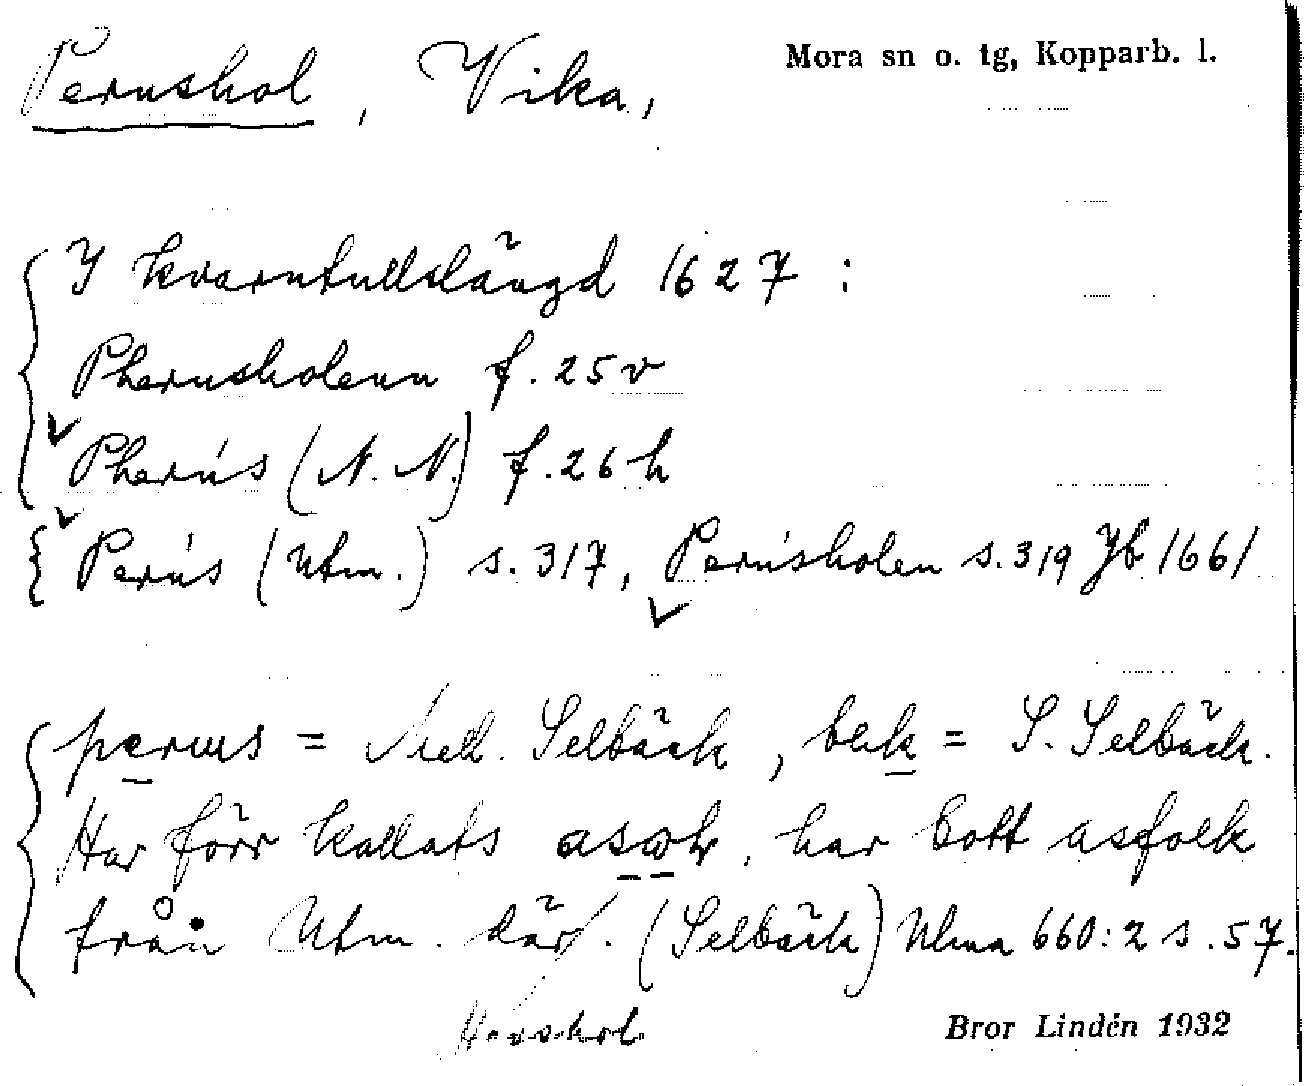 Pernshol, Vika,
Mora sn o. tg, Kopparb. l.
I kvarntullslängd 1627 :
Phernsholenn f. 25 v
Pherns (N. N.) f. 26 h
Perns (Utm.) s. 317, Pernsholen s. 319 Jb 1661
perus = Mell. Selbäck, bek = S. Selbäck.
Har förr kallats, har bott asfolk
från Utm. där. (Selbäck) Ulma 660:2 s. 57.
Bror Lindén 1932